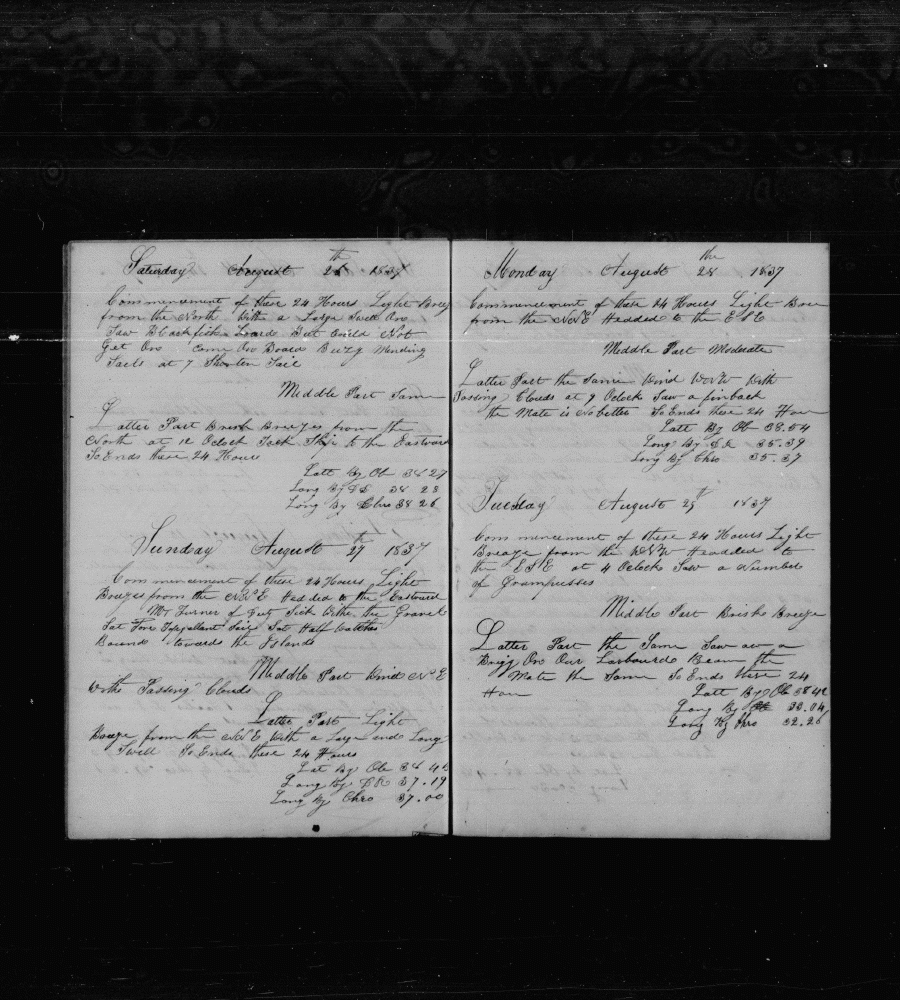 Saturday August 26th 1837
Commencement of these 24 Hours Light Breez
from the North With a Large Swell On
Saw Blackfish Loard But Could Not
Get On Come On Board Buizy Mending
Sails at 7 Shorten Sail
Middle Part Same
Latter Part Brisk Breezes from the
North at 12 Oclock Tack Ship to the Eastward
So Ends these 24 Hours
Latt By Ob 38 27
Long By DR 38 23
Long By Chro 38 26
Sunday August 27th 1837
Commencement of these 24 Hours Light
Breezes from the NNE Hedded to the Eastward
Mr Turner of Duty Sick Withe the Gravel
Sat Fore Topgallant Sail Set Half Watches
Bound towards the Islands
Middle Part Wind NE
Withe Passing Clouds
Latter Part Light
Breeze from the NNE With a Large and Long
Swell So Ends these 24 Hours
Lat By Ob 38 4
Long By DR 37.19
Long By Chro 37.00
Monday August 28the 1837
Commencement of these 24 Hours Light Bree
from the NNE Hedded to the ESE
Meddle Part Moderate
Latter Part the Same Wind WNW With
Passing Clouds at 9 Oclock Saw a finback
the Mate is No better So Ends these 24 Hour
Latt By Ob 38.54
Long By DR 35.39
Long By Chro 35.37
Tuesday August 29th 1837
Commencement of these 24 Hours Light
Breaze from the WNW Headded to
the ESE at 4 Oclock Saw a Number
of Grampusses
Middle Part Brisk Breeze
Latter Part the Same Saw a
Brigg On Our Larbourde Beam the
Mate the Same So Ends these 24
Hour
Latt By Ob 38 42
Long By 33.04
Long By Chro 32.26